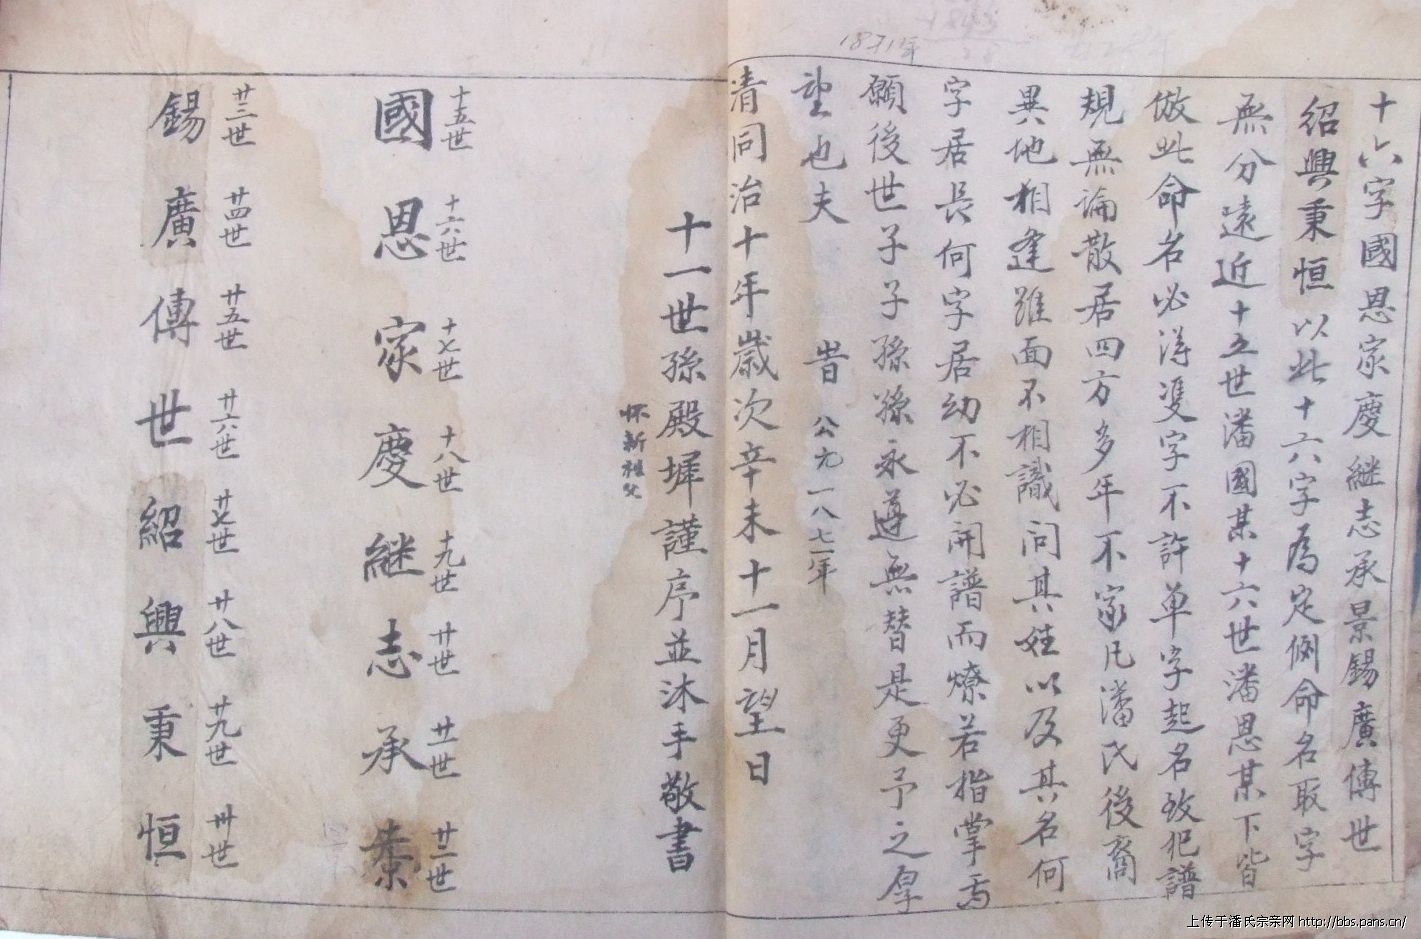 十六字國恩家慶継志承景錫廣傳世
紹興秉恒以此十六字為定例命名取字
無分遠近十五世潘國某十六世潘恩某下皆
倣此命名必淂雙字不許单字起名致犯譜
規無論散居四方多年不家凡潘氏後裔
異地相逢雖面不相識问其姓以及其名何
字居長何字居幼不必開譜而燎若指掌焉
願後世子子孫孫永遵無替是更予之厚
望也夫 昔 公元一八七一年
清同治十年歲次辛未十一月望日
十一世孫殿墀謹序並沐手敬書
怀新祖父
十五世 十六世 十七世 十八世 十九世 廿世 廿一世
國恩家慶継志承
廿三世 廿四世 廿五世 廿六世 廿七世 廿八世 廿九世 卅世
錫廣傳世紹興秉恒
1871年
1845
上传于潘氏宗亲网 http://bbs.pans.cn/